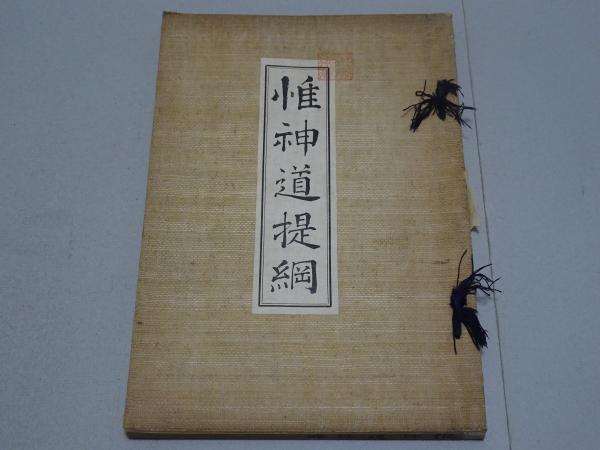 惟神道提綱